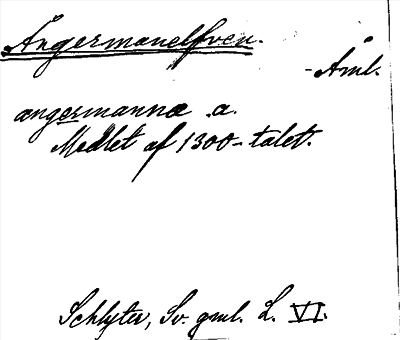 Ångermanelfven.
- Åml.
angermanna .a.
Medlet af 1300-talet.
Schlyter, Sv. gml. L. VI.